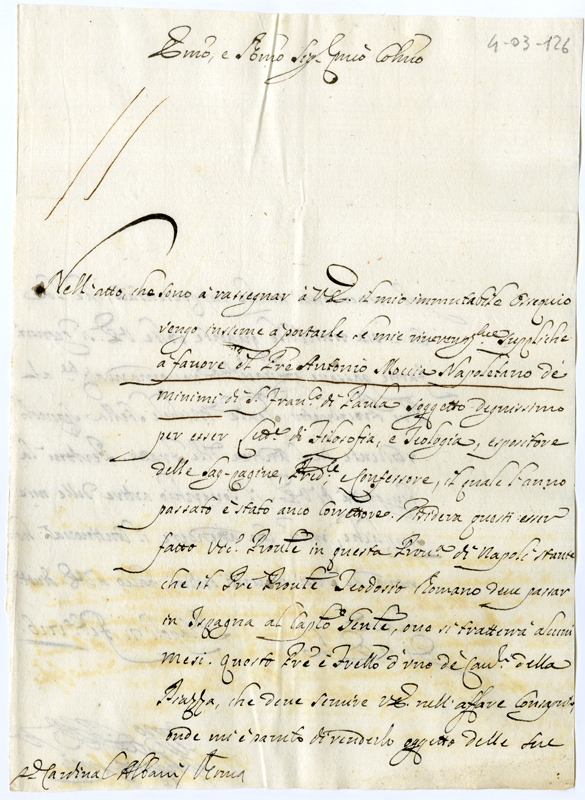 4-03-126
Emo, e Rmo Sigr Pnē Colmo
Nell'atto, che sono à rassegnar à V.E. il mio immutabile ossequio
vengo insieme a portarle le mie riverensme suppliche
a favore del Pre Antonio Moccia Napoletano de
minimi di S. Franco di Paula soggetto degnissimo
per esser Lettr di Filosofia, e Teologia, espositore
delle sag: pagine, Predre e Confessore, il quale l'anno
passato è stato anco Correttore. Desidera questi esser
fatto Vic. Provle in questa Prova di Napoli stante
che il Pre Provle Teodosio Romano deve passar
in Ispagna al Caplo Genle, ove si tratterrà alcuni
mesi. Questo Pre è Frello d'uno de Cavri della
Piazza, che deve servire V.E. nell'affare
onde mi è paruto di renderlo oggetto delle sue
Cardinal Albani Roma